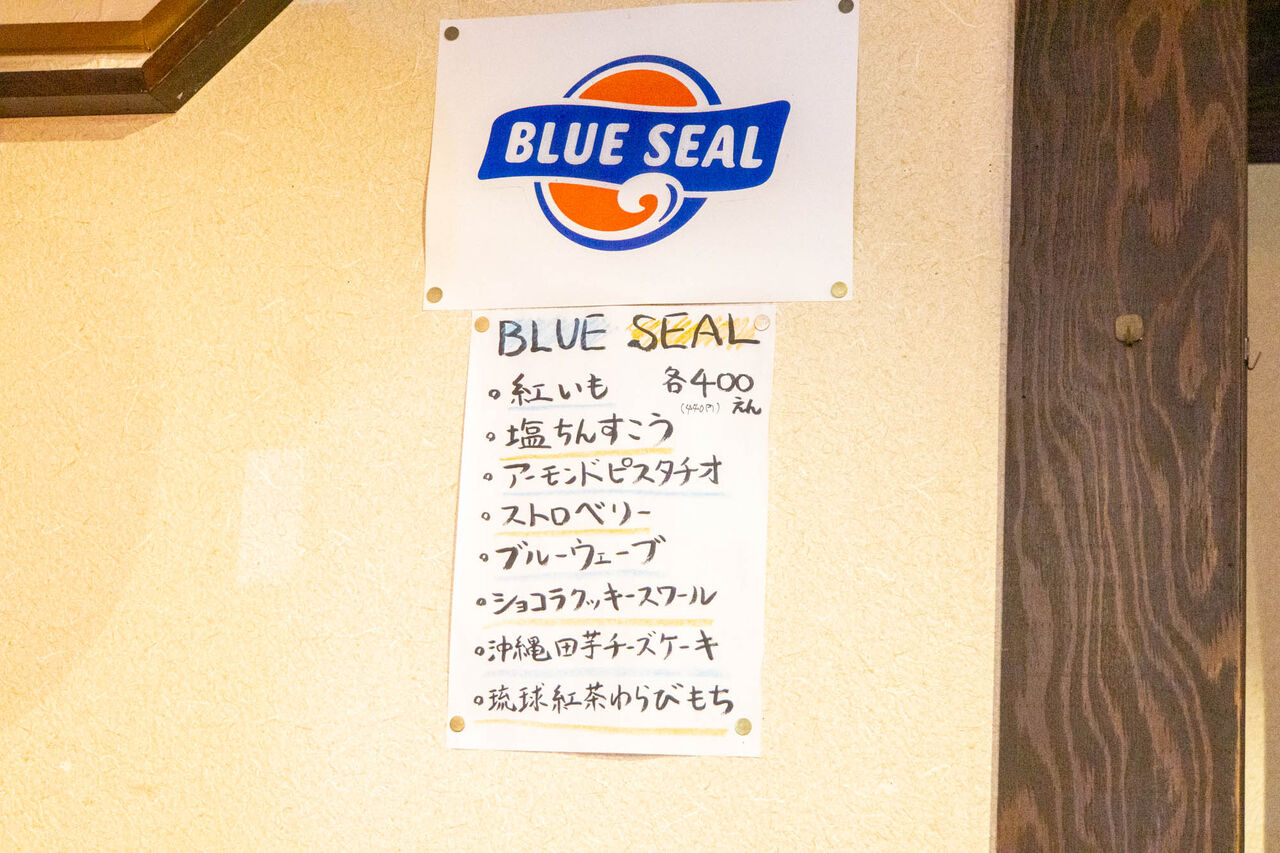 BLUE SEAL
BLUE SEAL
。紅いも 各400
(440円) えん
。塩ちんすこう
。アーモンドピスタチオ
。ストロベリー
。ブルーウェーブ
。ショコラクッキースワール
。沖縄田芋チーズケーキ
。琉球紅茶わらびもち